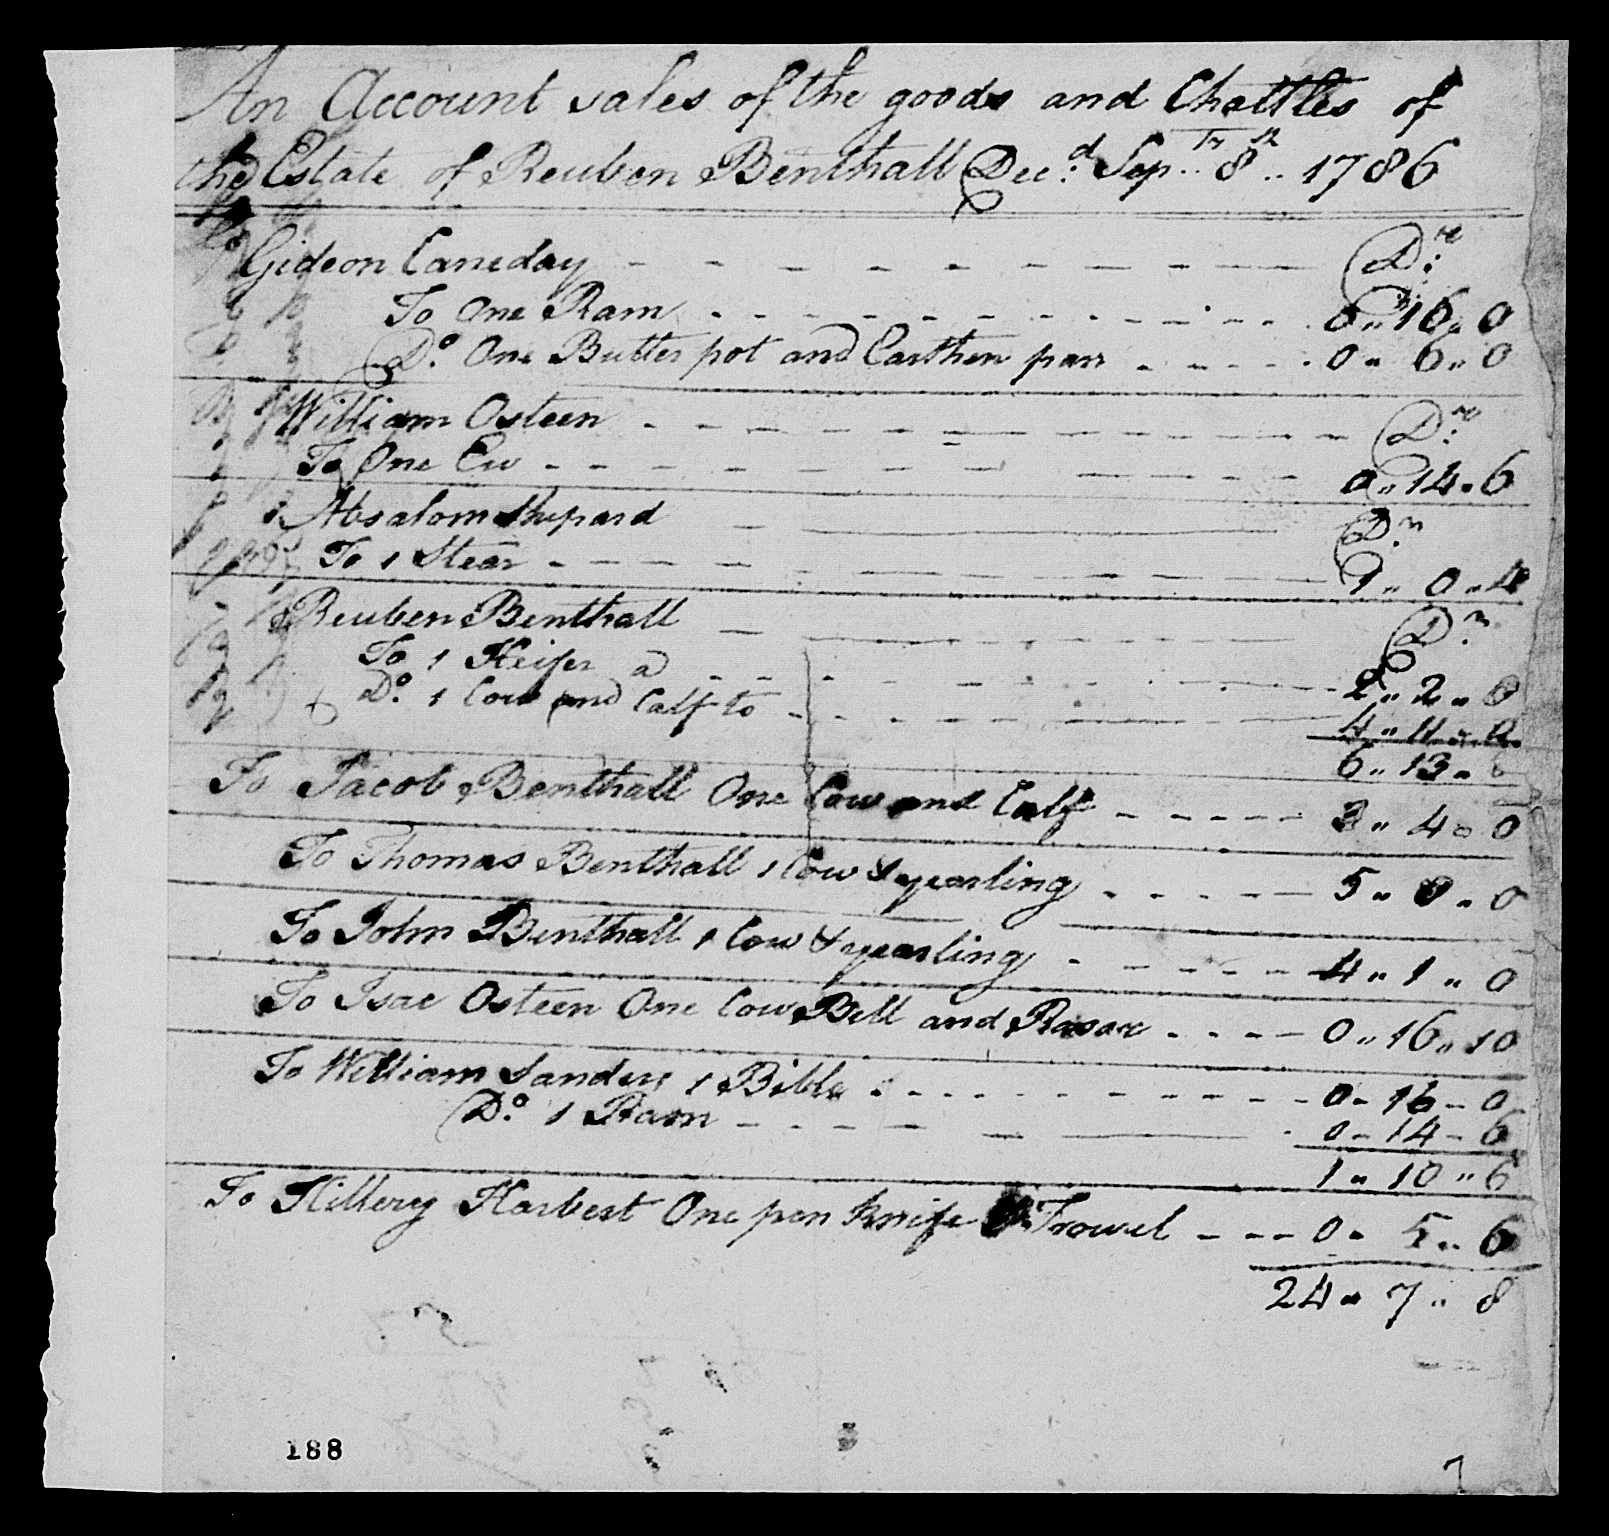 An Account sales of the goods and Chattles of
the Estate of Reuben Benthall Decd. Sepr 8th 1786
Gideon Caneday - - - - - - - - - Dr
To One Ram - - - - - - - - - - 0 " 16 " 0
Do One Butter pot and Earthen pan - - - - - 0 " 6 " 0
William Osteen - - - - - - - - - - Dr
To One Ew - - - - - - - - - 0 " 14 " 6
Absalom Shepard - - - Dr
To 1 Stear - - - - - - - - 1 " 0 " 4
Reuben Benthall - - - - - Dr
To 1 Heifer a - - - - - - - 2 " 2 " 0
Do 1 Cow and Calf to - - - - - - - 4 " 4 " 0
6 " 13 "
To Jacob Benthall One Cow and Calf - - - - - 3 " 4 " 0
To Thomas Benthall 1 Cow & yearling - - - - - 5 " 0 " 0
To John Benthall 1 Cow & yearling - - - - - 4 " 1 " 0
To Isac Osteen One Cow Bell and Rasor - - - - 0 " 16 " 10
To William Sanders 1 Bible - - - - - - - - - - 0 - 16 - 0
Do 1 Ram - - - - - - - 0 - 14 - 6
1 " 10 " 6
To Hillery Harbert One pen knife & Trowel - - - 0 " 5 " 6
24 " 7 " 8
188
7